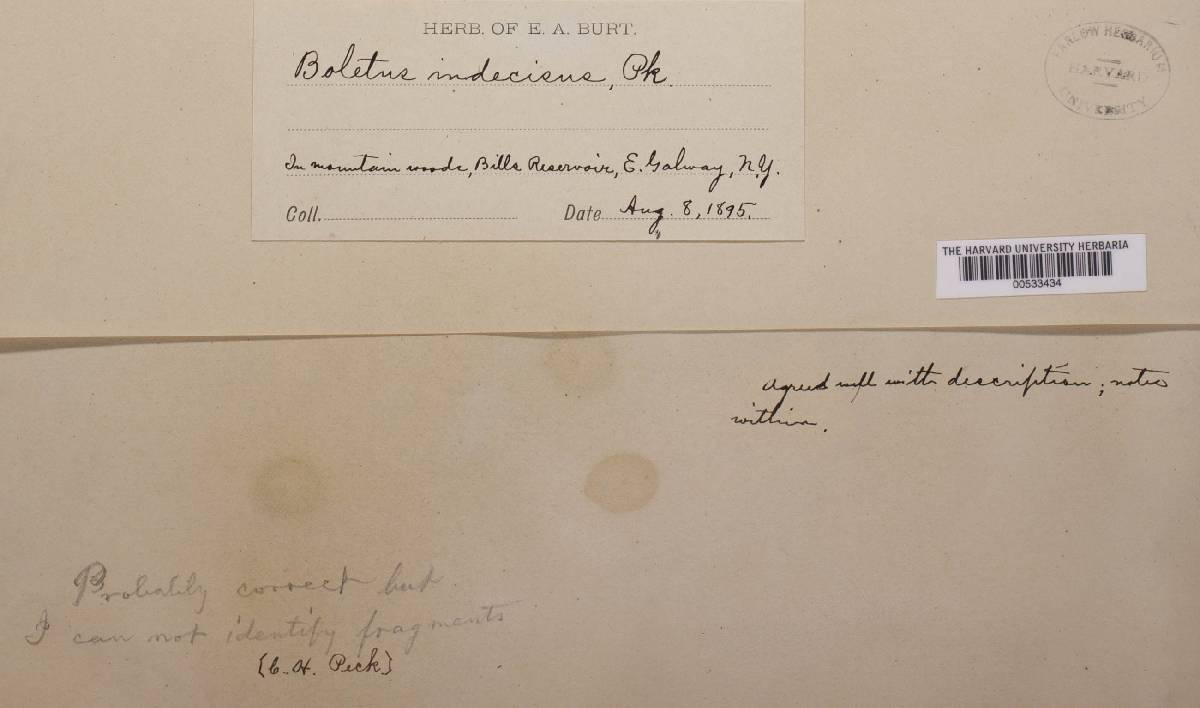 HERB. OF E. A. BURT.
Boletus indecisus, Pk.
In mountain woods, Bills Reservoir, E. Galway, N.Y.
Coll. Date Aug. 8, 1895.
FARLOW HERBARIUM
HARVARD
UNIVERSITY
THE HARVARD UNIVERSITY HERBARIA
00533434
Agrees well with description; notes
within.
Probably correct but
I can not identify fragments
{C. H. Peck}